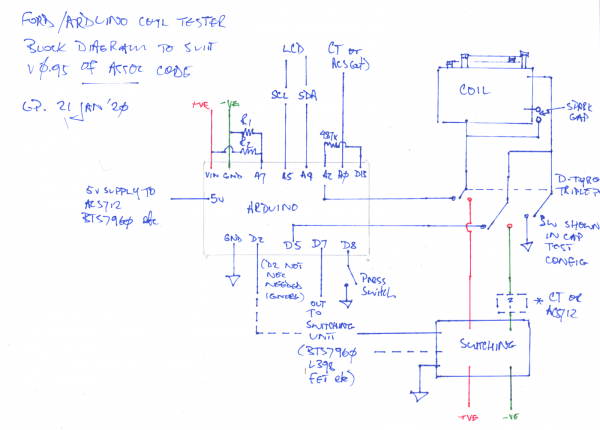 FORD/ARDUINO COIL TESTER
BLOCK DIAGRAM TO SUIT
V0.95 OF ASSOC CODE
G.P. 21 JAN '20
+VE
-VE
R1
R2
VIN
GND
A7
LCD
SCL
SDA
A5
A4
CT OR
ACS(40A)
A2
A0
D13
COIL
SPARK
GAP
5V SUPPLY TO
ACS712
BTS7960 etc
5V
ARDUINO
D-TYPE
TRIPLEP
SW SHOWN
IN CAP
TEST
CONFIG
GND
D2
D5
D7
D8
(D2 NOT
NOC
NEEDED
IGNORE)
OUT
TO
SWITCHING
UNIT
(BTS7960
L298
FET etc)
PRESS
SWITCH
* CT OR
ACS712
SWITCHING
+VE
-VE